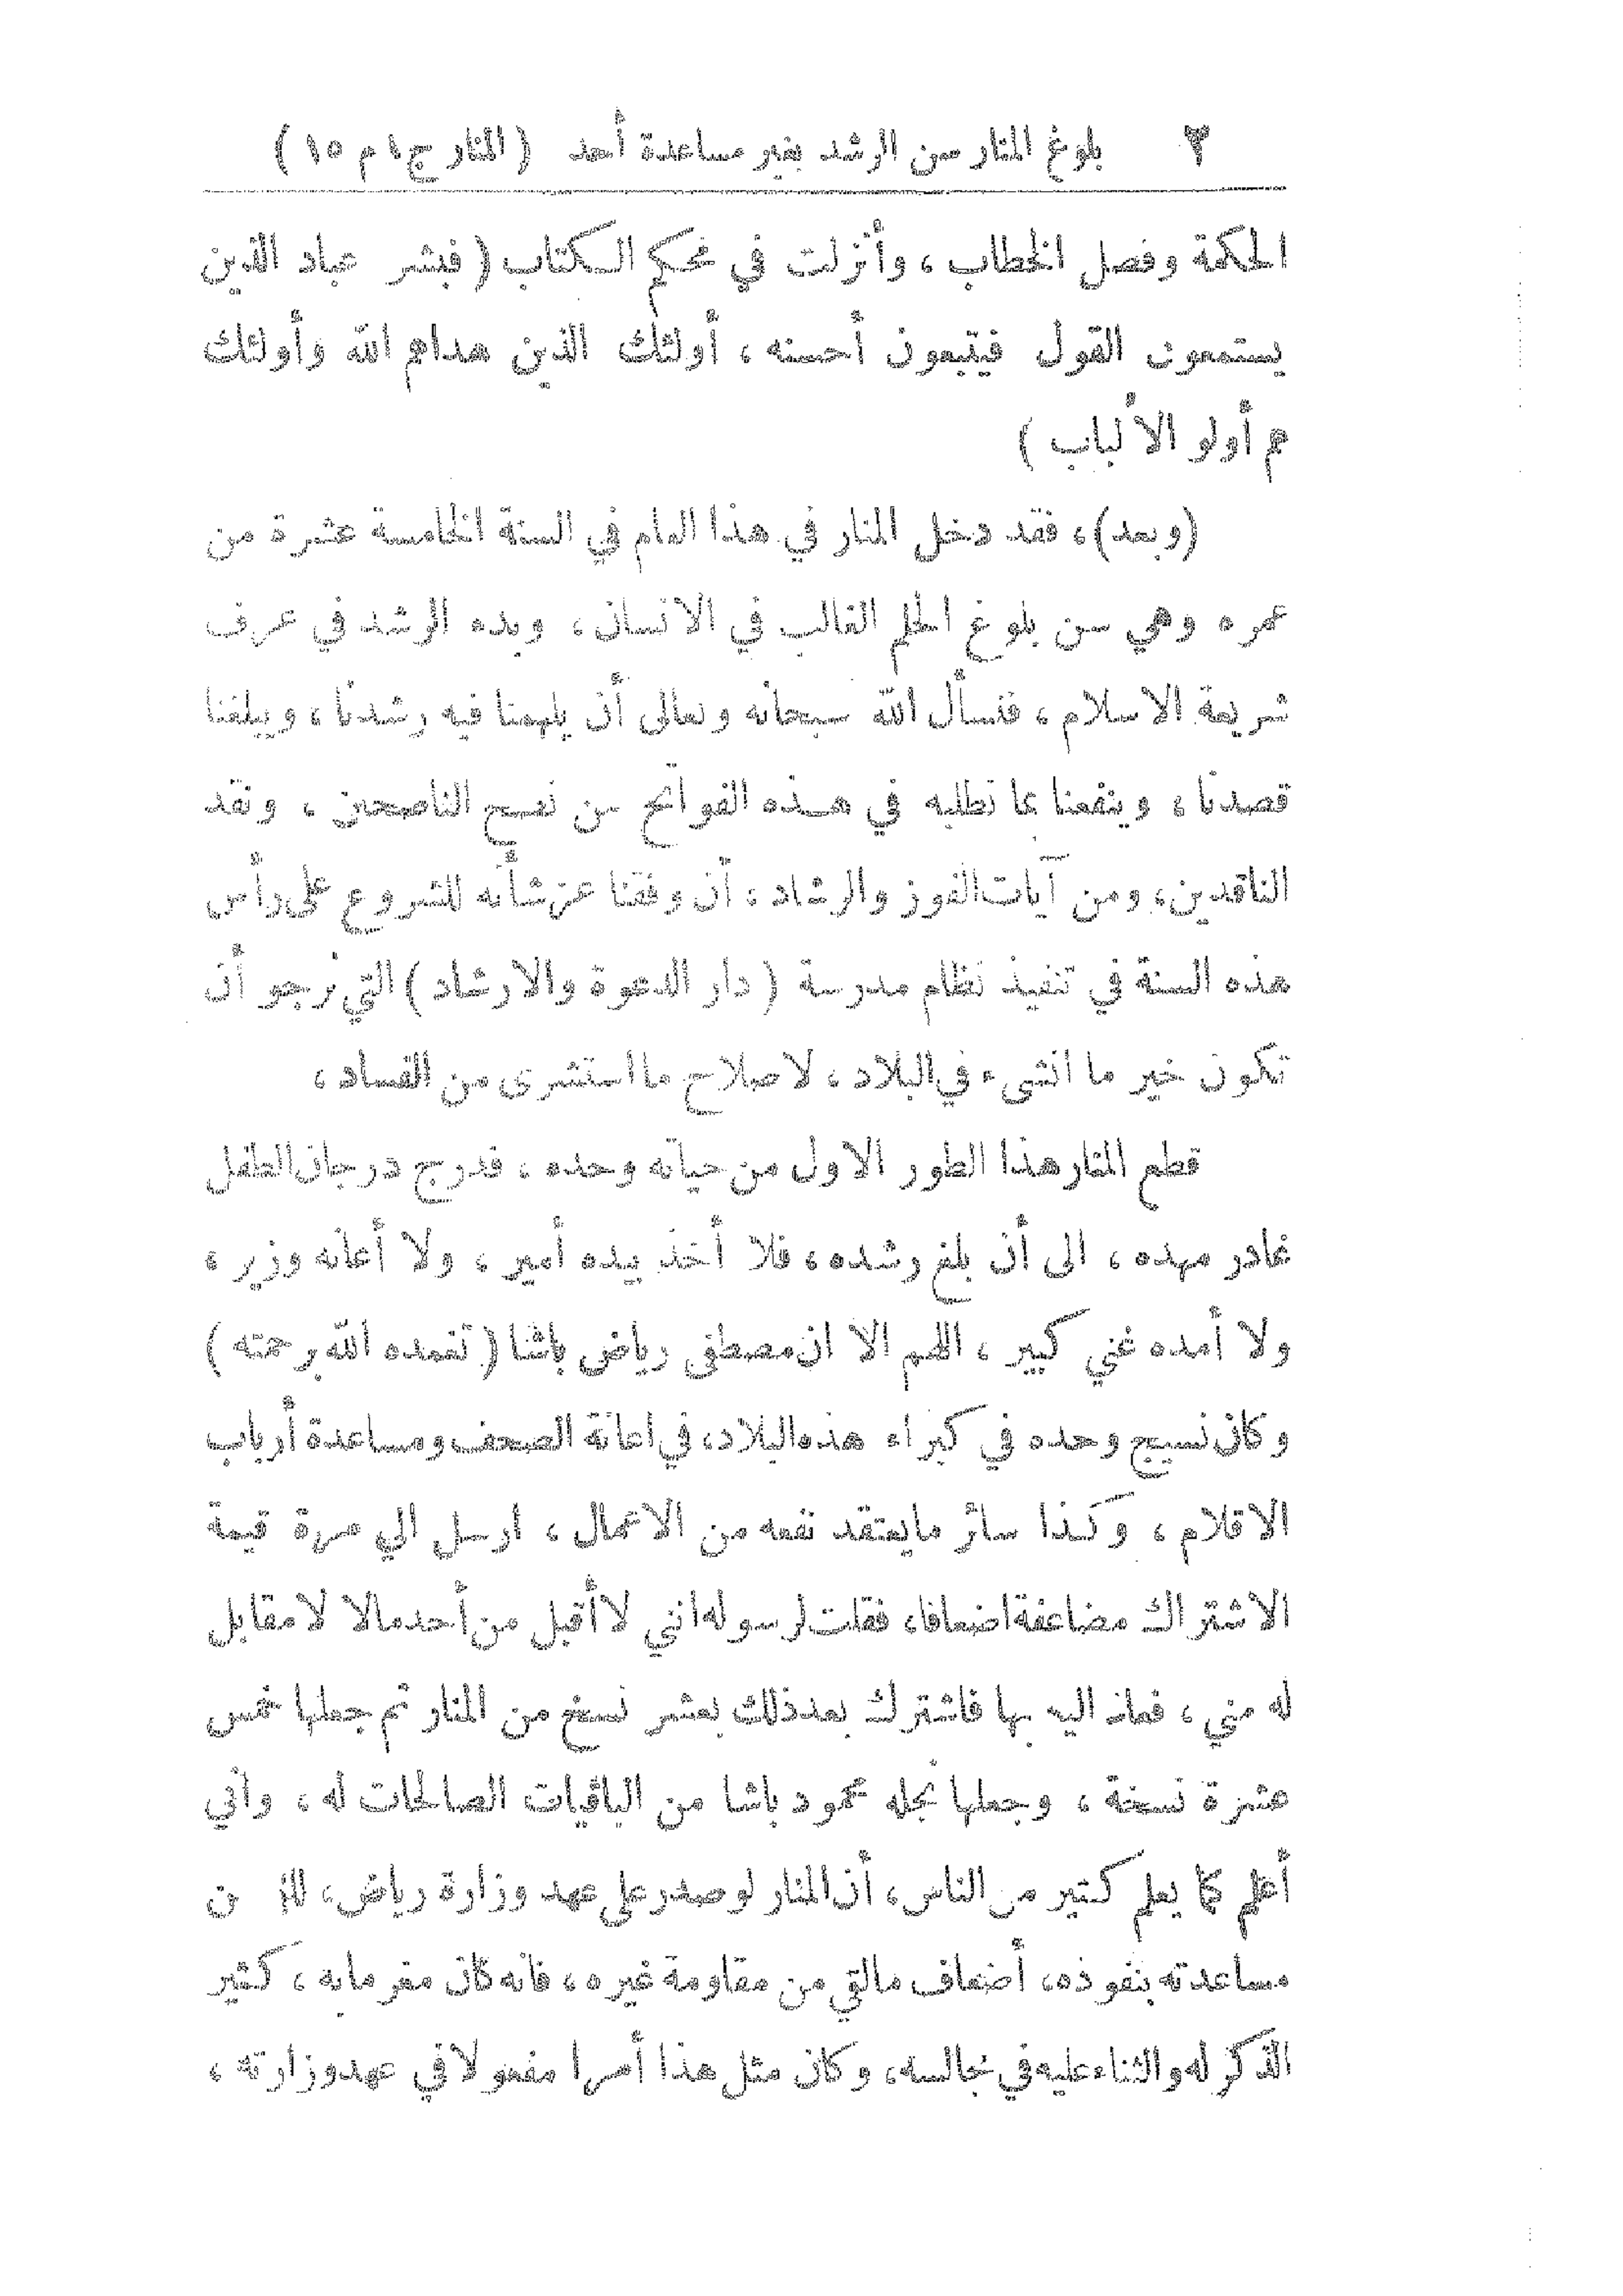 ٢ بلوغ المنار سن الرشد بغير مساعدة أحد (المنار ج١ م ١٥)
الحكمة وفصل الخطاب ، وأنزلت في محكم الكتاب (فبشر عباد الذين
يستمعون القول فيتبعون أحسنه ، أولئك الذين هداهم الله وأولئك
هم أولو الألباب )
(وبعد)، فقد دخل المنار في هذا العام في السنة الخامسة عشرة من
عمره وهي سن بلوغ الحلم الغالب في الانسان ، وبدء الرشد في عرف
شريعة الاسلام ، فنسأل الله سبحانه وتعالى أن يلهمنا فيه رشدنا ، ويبلغنا
قصدنا ، وينفعنا بما نطلبه في هذه الفواتح من نصح الناصحين ، ونقد
الناقدين ، ومن آيات الفوز والرشاد ، أن وفقنا عز شأنه للشروع على رأس
هذه السنة في تنفيذ نظام مدرسة ( دار الدعوة والارشاد ) التي نرجو أن
تكون خير ما انشىء في البلاد ، لاصلاح ما استشرى من الفساد ،
قطع المنار هذا الطور الاول من حياته وحده ، فدرج درجان الطفل
غادر مهده ، الى أن بلغ رشده ، فلا أخذ بيده أمير ، ولا أعانه وزير ،
ولا أمده غني كبير ، اللهم الا ان مصطفى رياض باشا ( تغمده الله برحمته )
وكان نسيج وحده في كبراء هذه البلاد ، في اعانة الصحف ومساعدة أرباب
الاقلام ، وكذا سائر ما يعتقد نفعه من الاعمال ، ارسل الي مرة قيمة
الاشتراك مضاعفة اضعافا ، فقلت لرسوله انني لا أقبل من أحد مالا لا مقابل
له مني ، فعاد اليه بها فاشترك بعد ذلك بعشر نسخ من المنار ثم جعلها خمس
عشرة نسخة ، وجعلها نجله محمود باشا من الباقيات الصالحات له ، واني
أعلم كما يعلم كثير من الناس ، أن المنار لو صدر على عهد وزارة رياض ، من
مساعدته بنفوذه ، أضعاف مالقي من مقاومة غيره ، فانه كان مغرما به ، كثير
الذكر له والثناء عليه في مجالسه ، وكان مثل هذا أمرا مفعولا في عهد وزارته ،